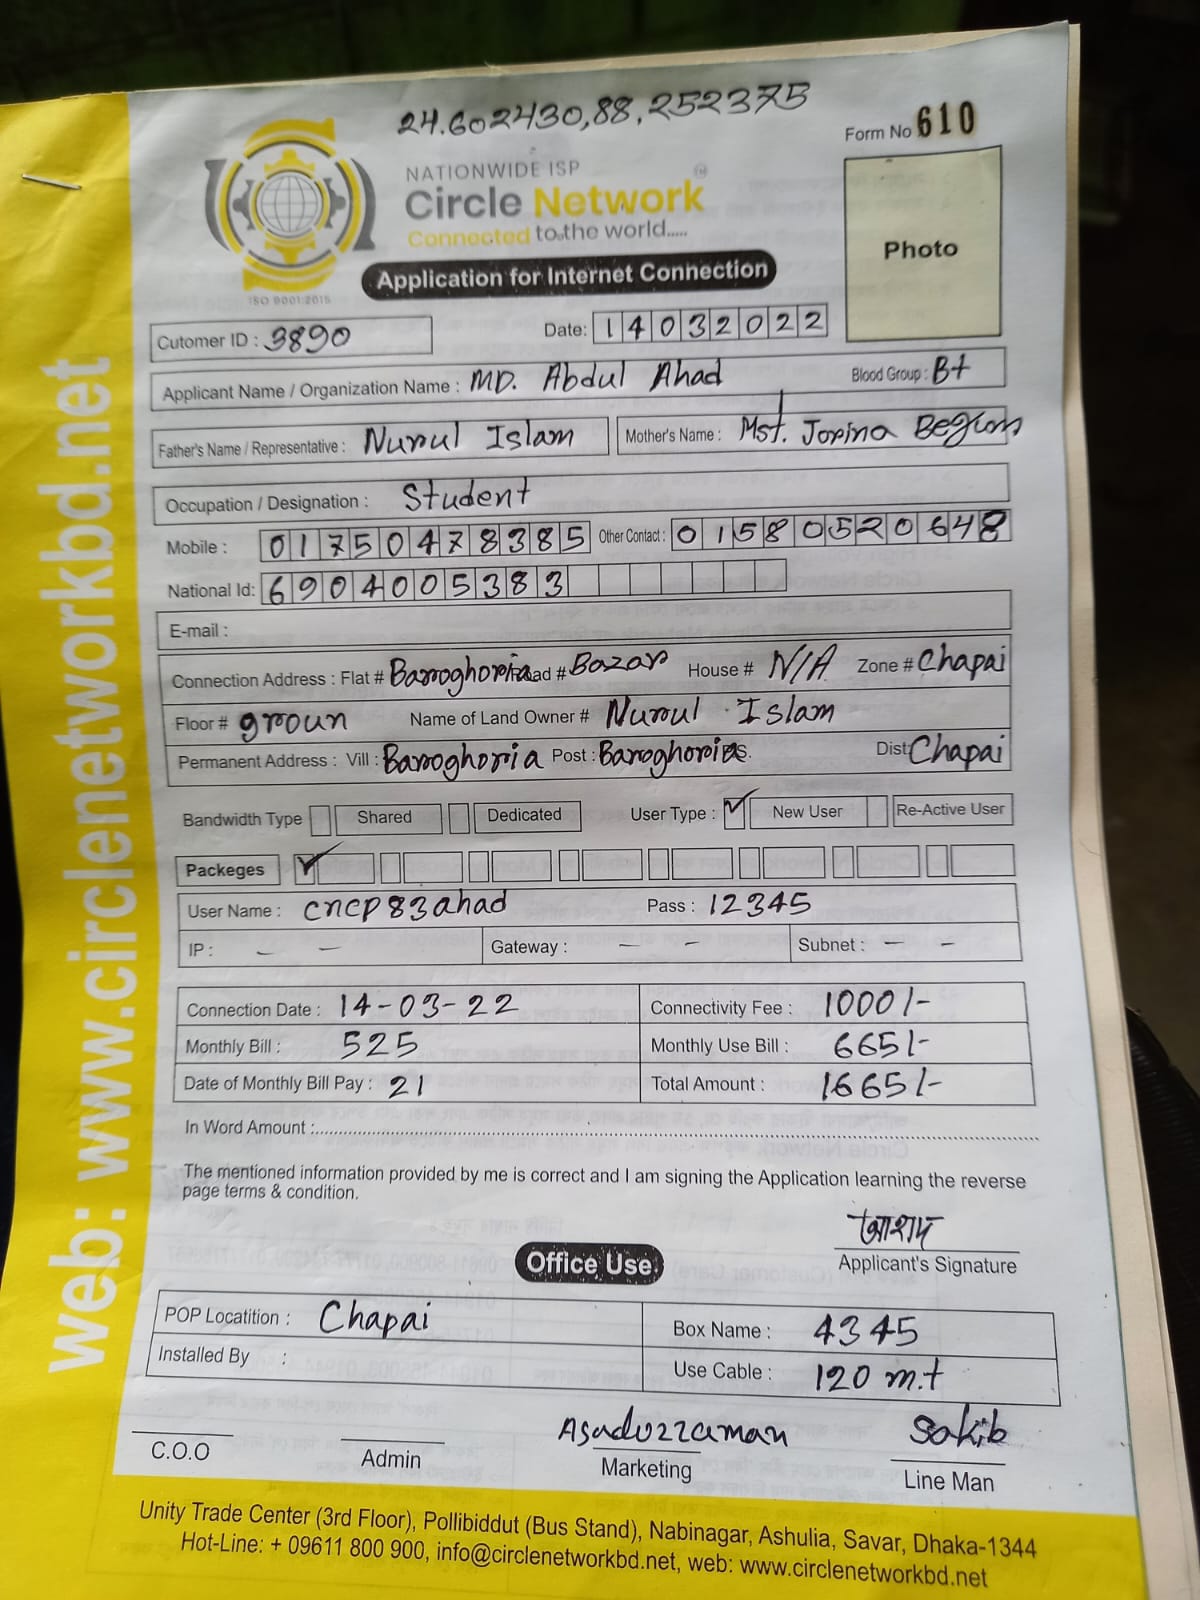 24.602430,88.252375
Form No 610
NATIONWIDE ISP
Circle Network
Connected to the world.....
ISO 9001:2015
Photo
Application for Internet Connection
Cutomer ID : 3890 Date: 14032022
Applicant Name / Organization Name : MD. Abdul Ahad Blood Group : B+
Father's Name / Representative : Nurul Islam Mother's Name : Mst. Jorina Begum
Occupation / Designation : Student
Mobile : 01750478385 Other Contact : 01580520648
National Id: 6904005383
E-mail :
Connection Address : Flat # Baroghoria Road # Bazar House # N/A Zone # Chapai
Floor # groun Name of Land Owner # Nurul Islam
Permanent Address : Vill : Baroghoria Post : Baroghoria P.S. Dist: Chapai
Bandwidth Type Shared Dedicated User Type : ✓ New User Re-Active User
Packeges ✓
User Name : cncp83ahad Pass : 12345
IP : – – Gateway : – – Subnet : – –
Connection Date : 14-03-22 Connectivity Fee : 1000/-
Monthly Bill : 525 Monthly Use Bill : 665/-
Date of Monthly Bill Pay : 21 Total Amount : 1665/-
In Word Amount :
The mentioned information provided by me is correct and I am signing the Application learning the reverse
page terms & condition.
আহাদ
Applicant's Signature
Office Use
POP Locatition : Chapai Box Name : 4345
Installed By : Use Cable : 120 m.t
Asaduzzaman Sakib
C.O.O Admin Marketing Line Man
Unity Trade Center (3rd Floor), Pollibiddut (Bus Stand), Nabinagar, Ashulia, Savar, Dhaka-1344
Hot-Line: + 09611 800 900, info@circlenetworkbd.net, web: www.circlenetworkbd.net
web: www.circlenetworkbd.net